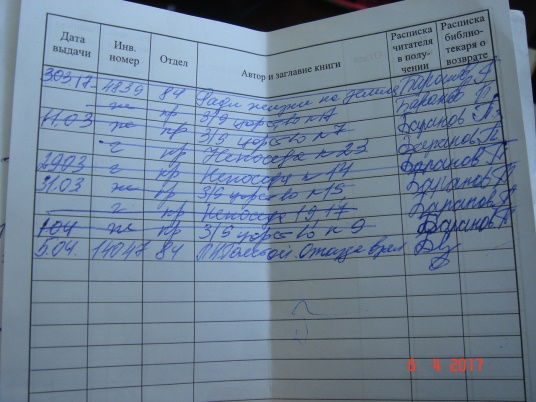 Дата выдачи Инв. номер Отдел Автор и заглавие книги Расписка читателя в полу- чении Расписка библио- текаря о возврате
30317 4839 84 Ради жизни на Земле Баранов П
ж пр 3/9 царство N 17 Баранов П.
11.03 ж пр 3/9 царство N 7 Баранов П
г пр Непоседа N 23 Баранов П.
2903 г пр Непоседа N 14 Баранов П
31.03 ж пр 3/9 царство N 15 Баранов П
г пр Непоседа 17 Баранов П
1.04 ж пр 3/9 царство N 9 Баранов П
5.04. 14047 84
8 4 2017